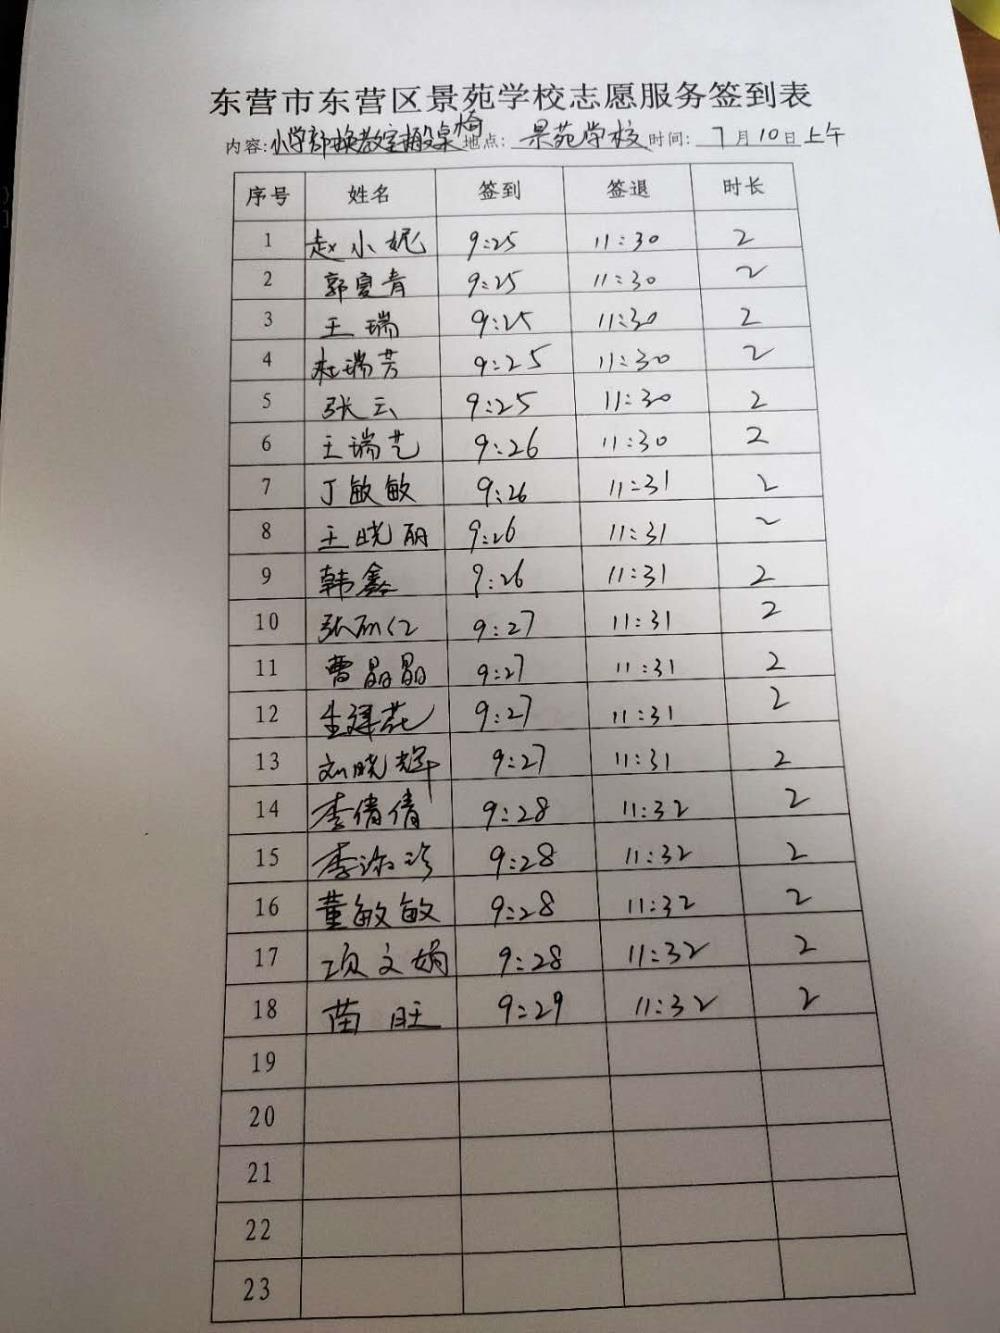 东营市东营区景苑学校志愿服务签到表
内容:小学部换教室搬桌椅 地点: 景苑学校 时间: 7月10日上午
序号 姓名 签到 签退 时长
1 赵小妮 9:25 11:30 2
2 郭夏青 9:25 11:30 2
3 王瑞 9:25 11:30 2
4 杜瑞芳 9:25 11:30 2
5 张云 9:25 11:30 2
6 王瑞芝 9:26 11:30 2
7 丁敏敏 9:26 11:31 2
8 王晓丽 9:26 11:31 2
9 韩鑫 9:26 11:31 2
10 张丽红 9:27 11:31 2
11 曹晶晶 9:27 11:31 2
12 9:27 11:31 2
13 刘晓辉 9:27 11:31 2
14 李倩倩 9:28 11:32 2
15 李淑珍 9:28 11:32 2
16 董敏敏 9:28 11:32 2
17 项文娟 9:28 11:32 2
18 苗旺 9:29 11:32 2
19
20
21
22
23